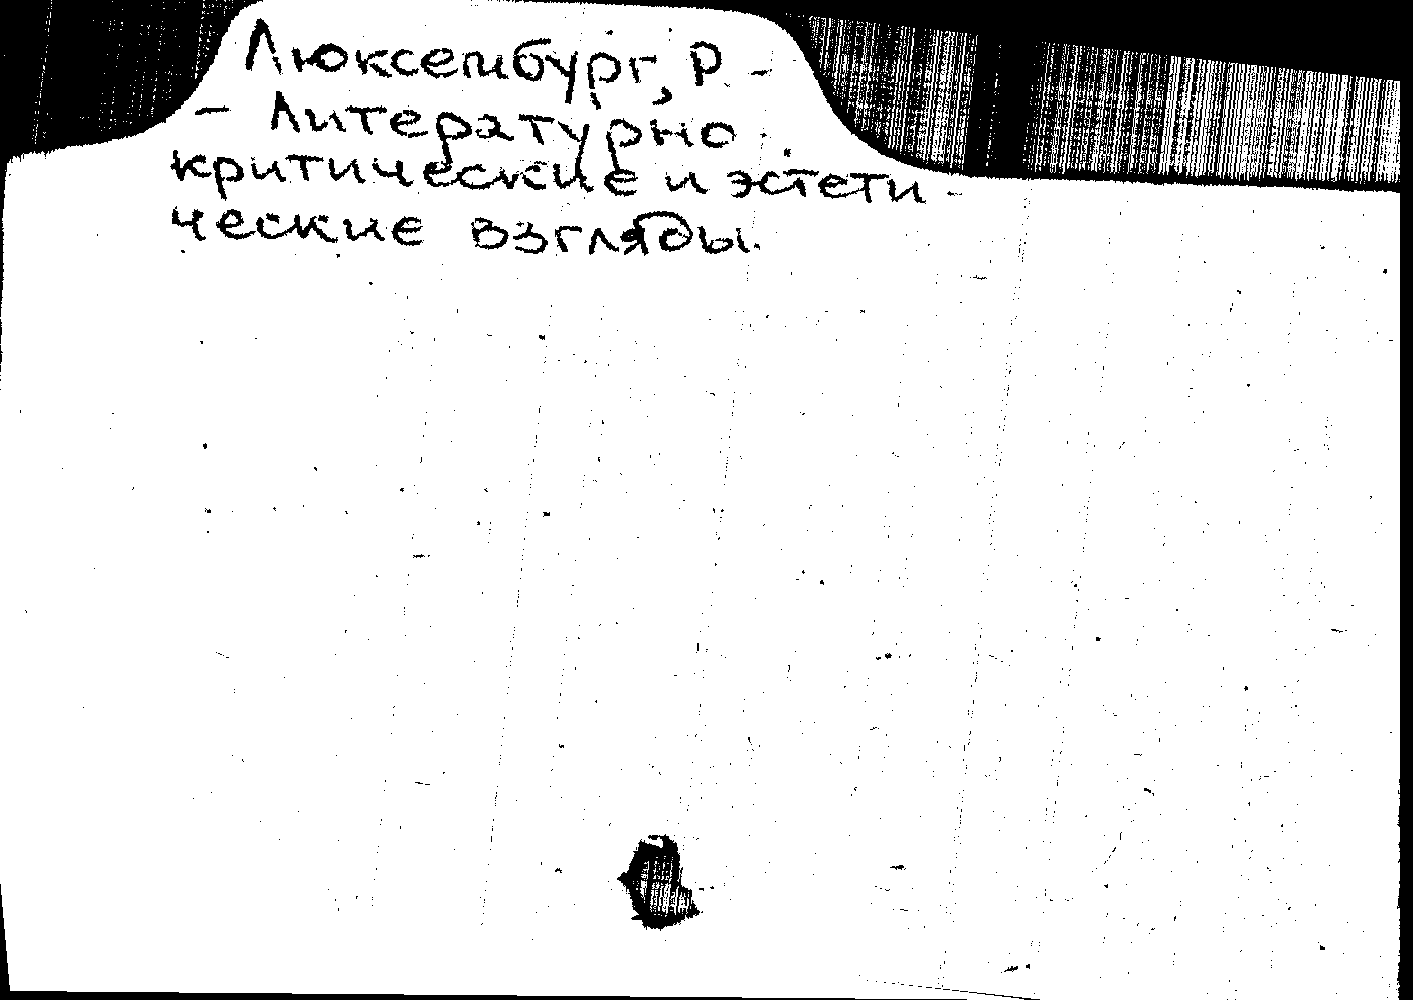 Люксембург, Р -
- Литературно
критические и эстети -
ческие взгляды.